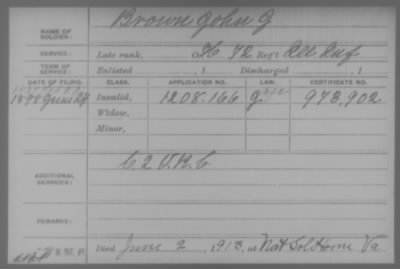 NAME OF SOLDIER: Brown John G
SERVICE: Late rank, Co. H 42 Reg't Ill Inf
TERM OF SERVICE: Enlisted , 1 Discharged , 1
DATE OF FILING. CLASS. APPLICATION NO. LAW. CERTIFICATE NO.
1898 June 24 Invalid, 1208.166 G 973.902
Widow,
Minor,
ADDITIONAL SERVICES: C 2 V.R.C
REMARKS:
Died June 2, 1913, at Nat Sol Home Va